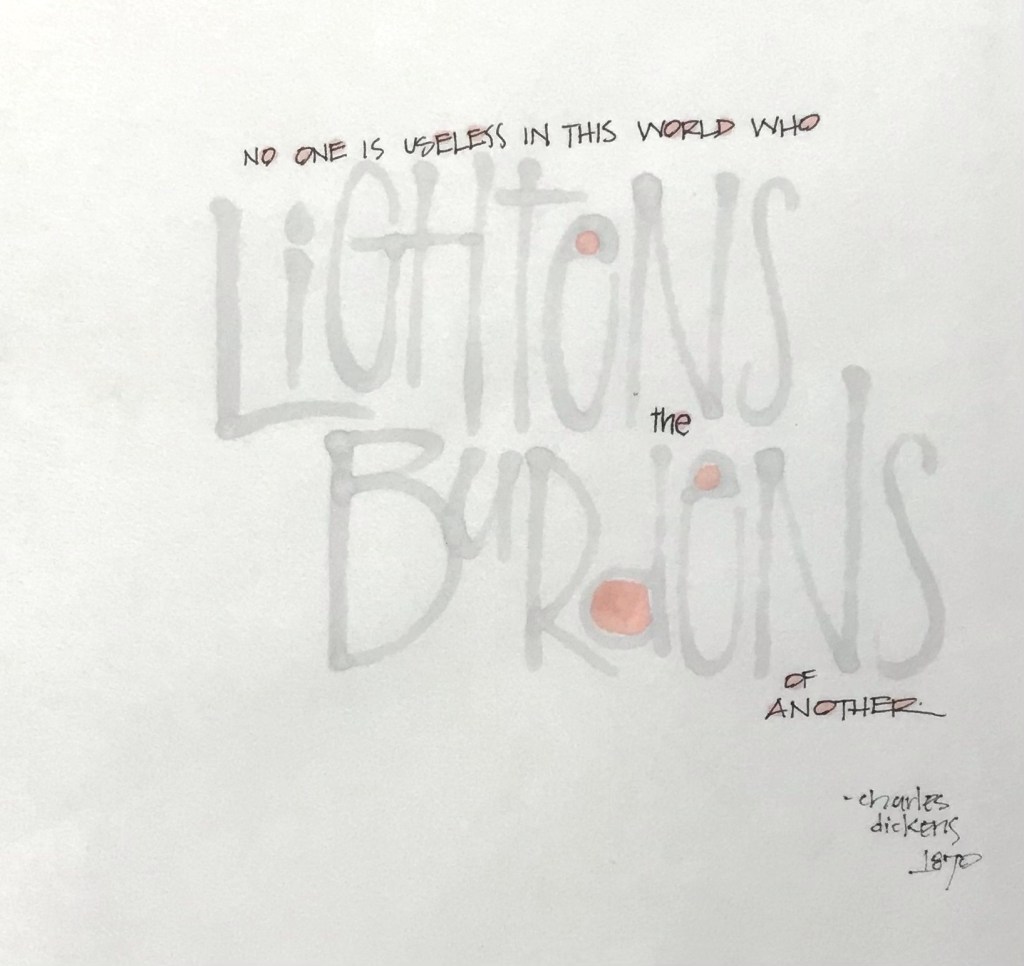 NO ONE IS USELESS IN THIS WORLD WHO
LiGHTeNS
the
BuRdeNS
OF
ANOTHER.
-charles
dickens
1870